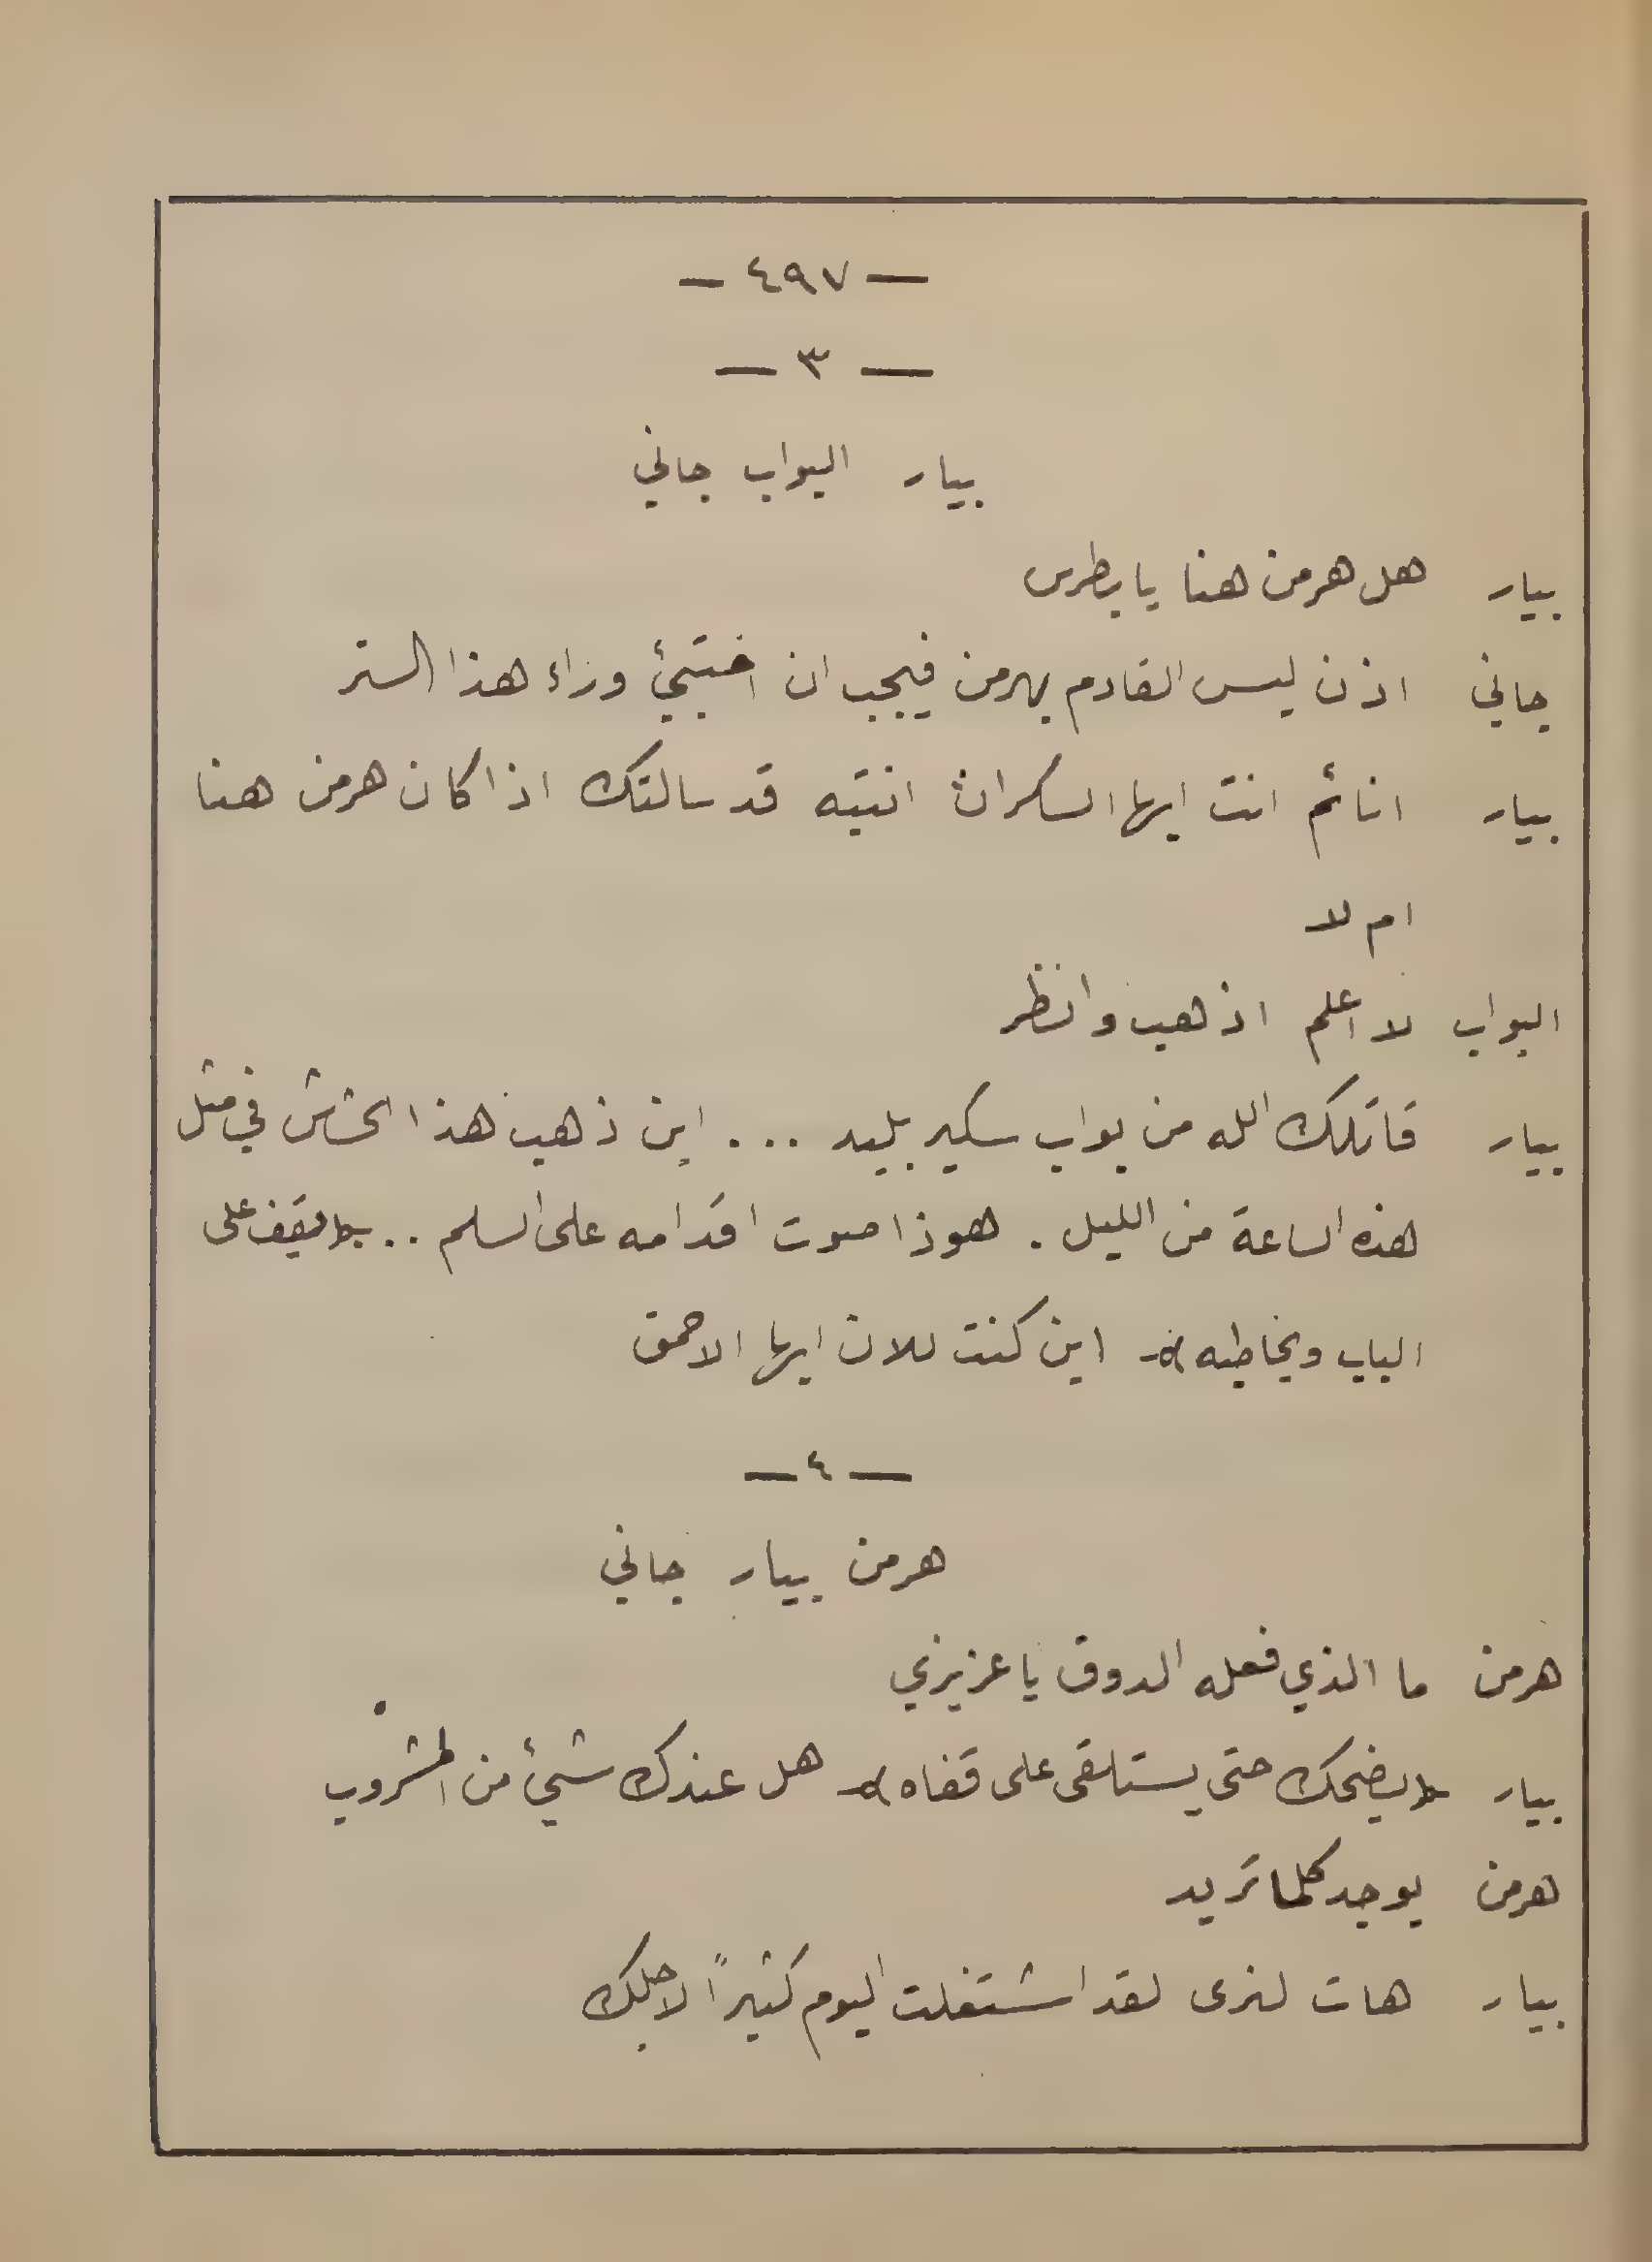 — ٤٩٧ —
— ٣ —
بيار البواب جاني
بيار هل هرمن هنا يا بطرس
جاني اذن ليس القادم بهرمن فيجب ان اختبئ وراء هذا الستر
بيار انائم انت ايها السكران انتبه قد سالتك اذا كان هرمن هنا
ام لا
البواب لا اعلم اذهب وانظر
بيار قاتلك الله من بواب سكير بليد ... اين ذهب هذا الخشاش في مثل
هذه الساعة من الليل . هوذا صوت اقدامه على السلم .. (يقف على
الباب ويخاطبه) اين كنت للان ايها الاحمق
— ٤ —
هرمن بيار جاني
هرمن ما الذي فعله الدوق يا عزيزي
بيار (يضحك حتى يستلقى على قفاه) هل عندك شيئ من المشروب
هرمن يوجد كلما تريد
بيار هات لنرى لقد اشتغلت اليوم كثيراً لاجلك